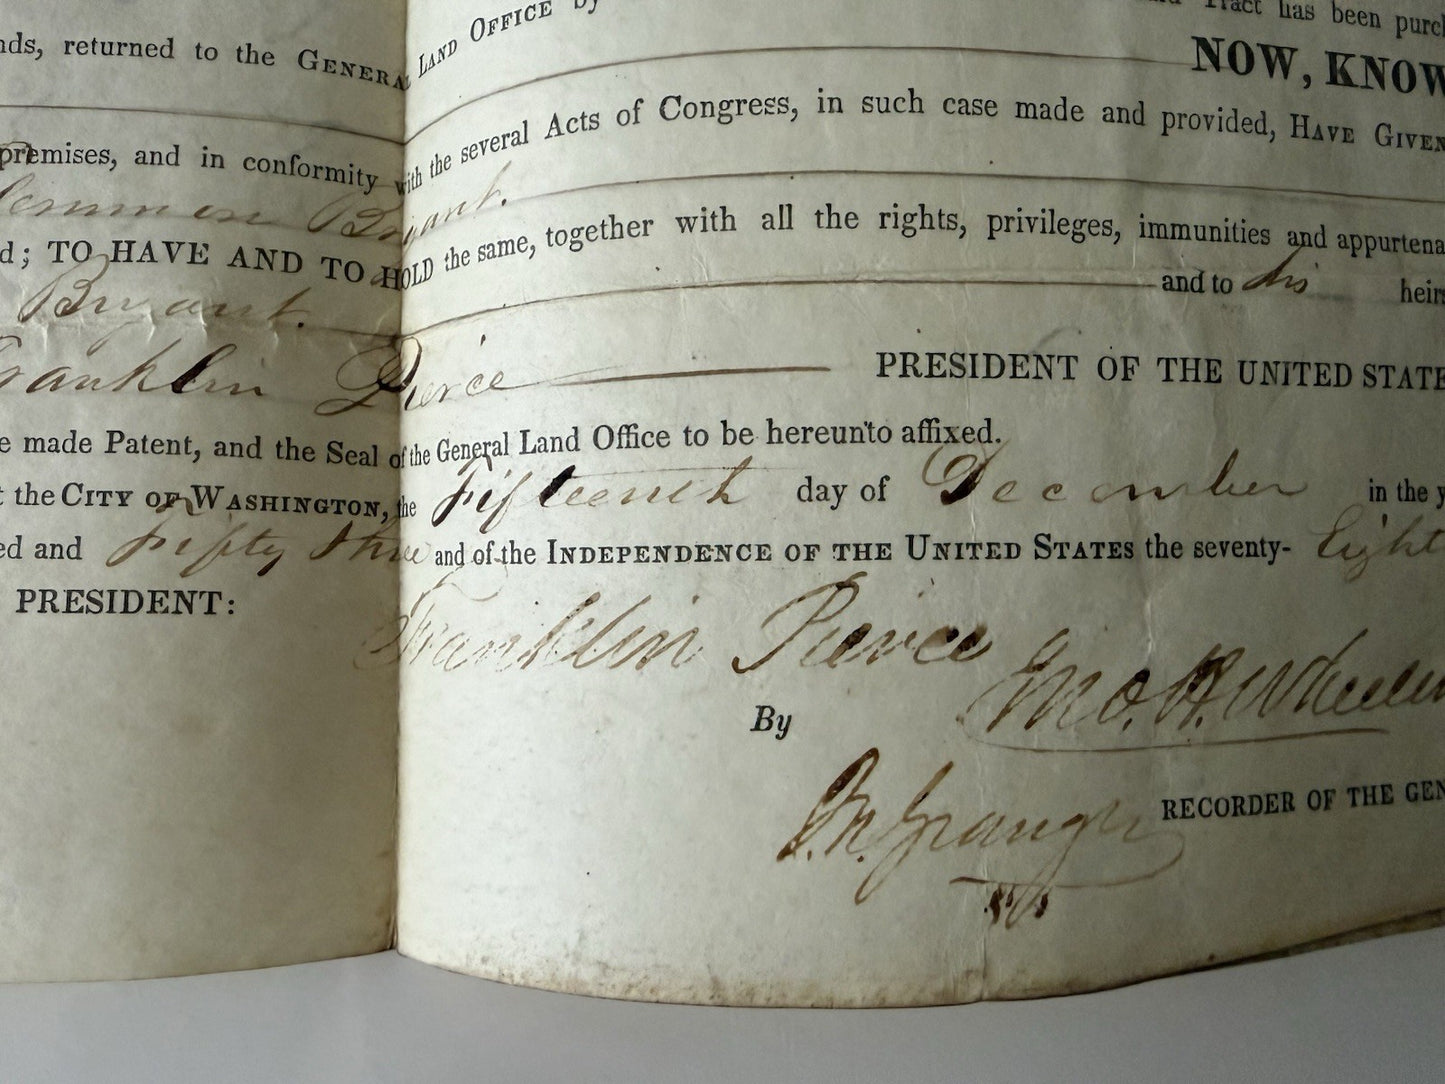 LAND OFFICE by Tract has been purc
nds, returned to the GENERAL
NOW, KNOW
premises, and in conformity with the several Acts of Congress, in such case made and provided, HAVE GIVEN
Bryant.
d; TO HAVE AND TO HOLD the same, together with all the rights, privileges, immunities and appurtena
Bryant. and to his heirs
Franklin Pierce PRESIDENT OF THE UNITED STATE
e made Patent, and the Seal of the General Land Office to be hereunto affixed.
t the CITY OF WASHINGTON, the Fifteenth day of December in the y
ed and Fifty three and of the INDEPENDENCE OF THE UNITED STATES the seventy- Eight
PRESIDENT: Franklin Pierce
By
RECORDER OF THE GEN